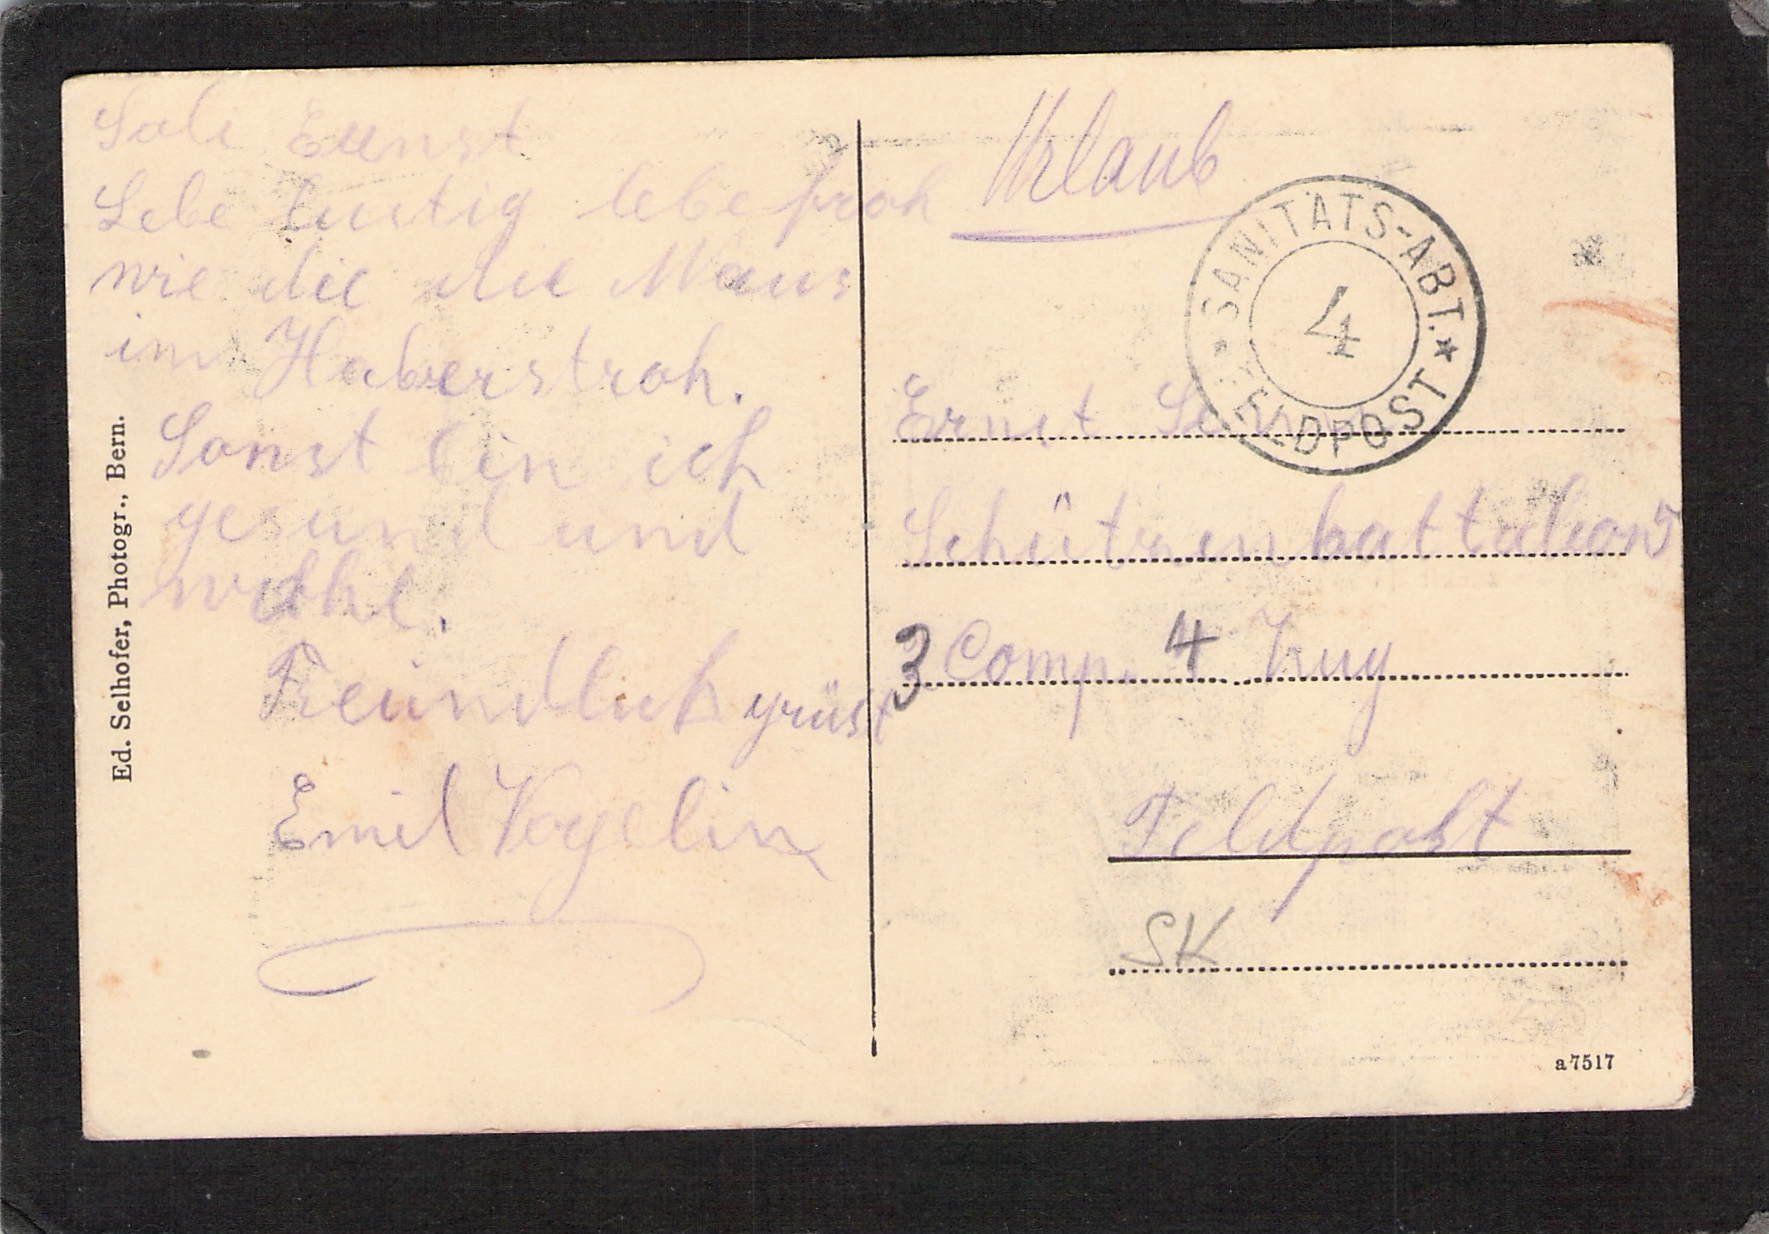 Sali Ernst
Lebe lustig lebe froh
wie die die Maus
im Haberstroh.
Sonst bin ich
gesund und
wohl.
Freundlich grüst
Emil Vogelin
Ed. Selhofer, Photogr., Bern.
Urlaub
SANITÄTS-ABT.
4
FELDPOST
Ernst
Schützenbattalion 5
3 Comp. 4 Zug
Feldpost
SK
a 7517